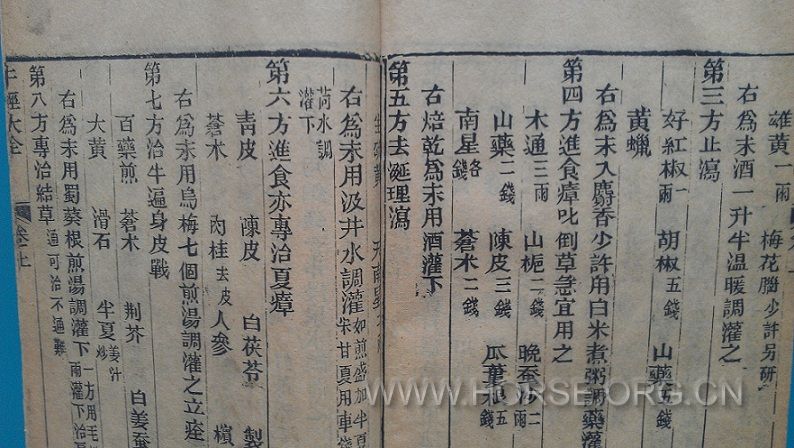 雄黃一兩 梅花腦少許另研
右爲末酒一升半溫暖調灌之
第三方止瀉
好紅椒一兩 胡椒五錢 山藥五錢
黃蠟
右爲末入麝香少許用白米煮粥調藥灌
第四方進食瘴叱倒草急宜用之
木通三兩 山梔二兩 晚蚕沙二
山藥二錢 陳皮三錢 瓜蔞五
南星各錢 蒼朮二錢
右焙乾爲末用酒灌下
第五方去涎理瀉
右爲末用汲井水調灌如煎盛加半夏
荷水調
灌下
第六方進食亦專治夏瘴
青皮 陳皮 白茯苓 製
蒼木 肉桂去皮 人參 檳
右爲末用烏梅七個煎湯調灌之立痊
第七方治牛遍身皮戰
百藥煎 蒼木 荆芥 白姜蚕
大黃 滑石 半夏姜汁炒
右爲末用蜀葵根煎湯調灌下一方用毛
第八方專治結草通可治不通難
大全 卷上
WWW.HORSE.ORG.CN